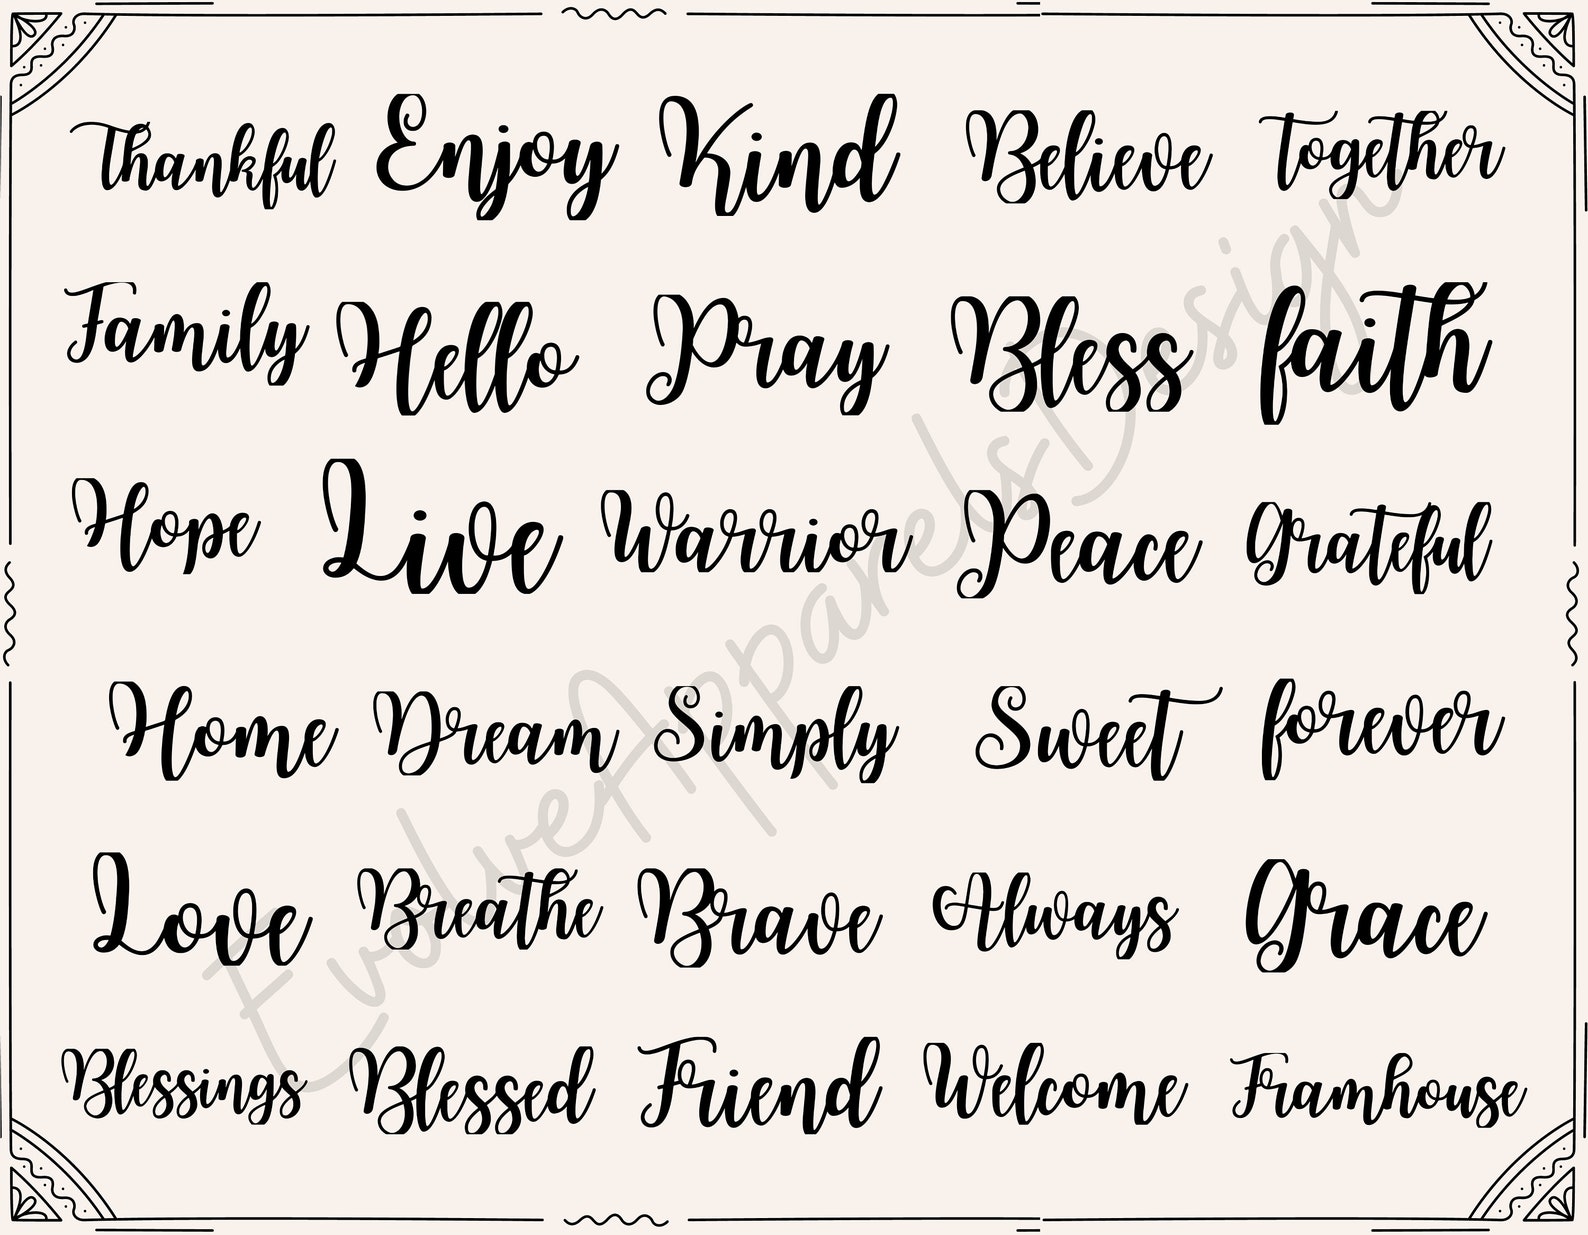 Thankful Enjoy Kind Believe Together
Family Hello Pray Bless faith
Hope Live Warrior Peace Grateful
Home Dream Simply Sweet forever
Love Breathe Brave Always Grace
Blessings Blessed Friend Welcome Framhouse
EvolveApparelsDesign